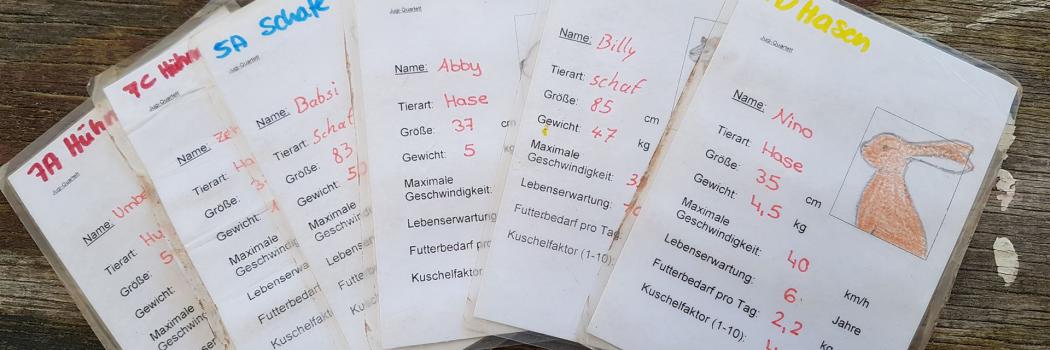 7A Hühn
Jugi-Quartett
Name: Umbe
Tierart:
Größe: 5
Gewicht:
Maximale
7C Hühn
Jugi-Quartett
Name:
Tierart:
Größe:
Gewicht:
Maximale
Geschwindig
Lebenserwa
Futterbedarf
Kuschelfakt
5A Schafe
Jugi-Quartett
Name: Babsi
Tierart: Schaf
Größe: 83
Gewicht: 5
Maximale
Geschwindi
Lebenser
Futter
Kusch
Jugi-Quartett
Name: Abby
Tierart: Hase
Größe: 37 cm
Gewicht: 5
Maximale
Geschwindigkeit:
Lebenserwartung
Futterbedarf pro
Kuschelfaktor
Name: Billy
Tierart: Schaf
Größe: 85 cm
Gewicht: 47 kg
Maximale
Geschwindigkeit: 3
Lebenserwartung:
Futterbedarf pro Tag:
Kuschelfaktor (1-10):
D Hasen
Jugi-Quartett
Name: Nino
Tierart: Hase
Größe: 35 cm
Gewicht: 4,5 kg
Maximale
Geschwindigkeit: 40 km/h
Lebenserwartung: 6 Jahre
Futterbedarf pro Tag: 2,2 kg
Kuschelfaktor (1-10):